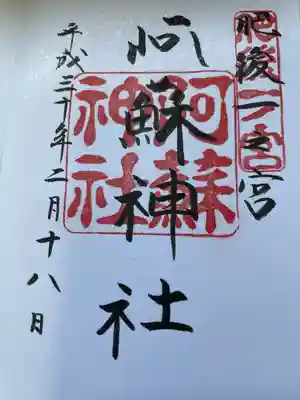 肥後一之宮
阿蘇神社
平成三十年二月十八日
肥後一宮
阿蘇神社